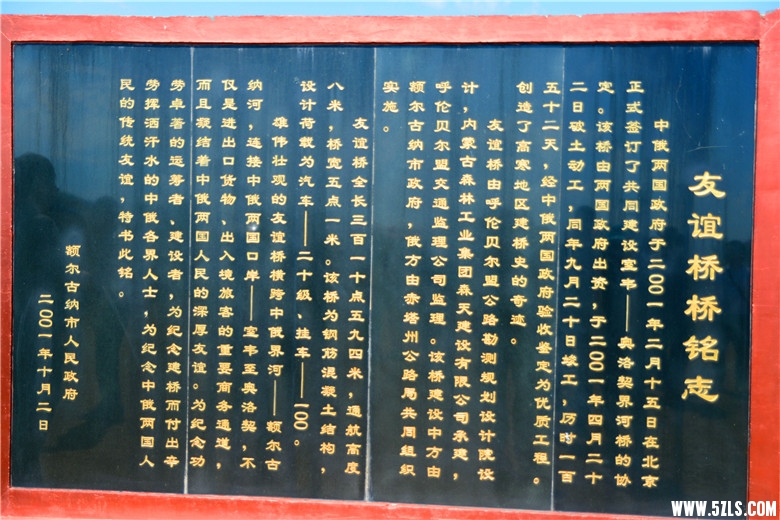 友谊桥桥铭志
中俄两国政府于二00一年二月十五日在北京
正式签订了共同建设室韦——奥洛契界河桥的协
定。该桥由两国政府出资，于二00一年四月二十
二日破土动工，同年九月二十日竣工，历时一百
五十二天，经中俄两国政府验收鉴定为优质工程。
创造了高寒地区建桥史的奇迹。
友谊桥由呼伦贝尔盟公路勘测规划设计院设
计，内蒙古森林工业集团森天建设有限公司承建，
呼伦贝尔盟交通监理公司监理。该桥建设中方由
额尔古纳市政府，俄方由赤塔州公路局共同组织
实施。
友谊桥全长三百一十点五九四米，通航高度
八米，桥宽五点一米。该桥为钢筋混凝土结构，
设计荷载为汽车——二十级、挂车——一00。
雄伟壮观的友谊桥横跨中俄界河——额尔古
纳河，连接中俄两国口岸——室韦至奥洛契，不
仅是进出口货物、出入境旅客的重要商务通道，
而且凝结着中俄两国人民的深厚友谊。为纪念功
劳卓著的运筹者、建设者，为纪念建桥而付出辛
劳挥洒汗水的中俄各界人士，为纪念中俄两国人
民的传统友谊，特书此铭。
额尔古纳市人民政府
二00一年十月二日
WWW.5ZLS.COM